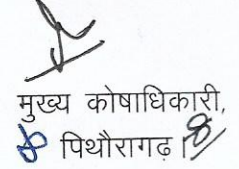 मुख्य कोषाधिकारी,
पिथौरागढ़।